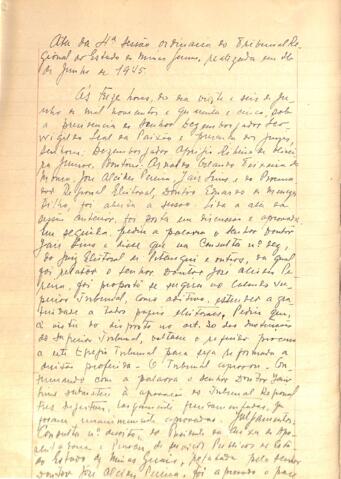 Ata da 4ª sessão ordinaria do Tribunal Re-
gional do Estado de Minas Gerais, realizada em 26
de Junho de 1945.
Ás treze horas, do dia vinte e seis de Ju-
nho de mil novecentos e quarenta e cinco, sob
a presidencia do Senhor Desembargador
Leal da Paixão e presentes os juizes
senhores: Desembargador
Doutores
José Alcides Pereira, Jair Lins e o Procura-
dor Regional Eleitoral, Doutor Eduardo de Menezes
Filho, foi aberta a sessão. Lida a ata da
sessão anterior, foi posta em discussão e aprovada.
Em seguida, pediu a palavra o Senhor Doutor
Jair Lins e disse que na Consulta nº seis,
do Juiz Eleitoral de Pitangui e outros, da qual
foi relator o senhor Doutor José Alcides Pe-
reira, foi proposto se Colendo Su-
perior Tribunal, como aditivo, estender a
a todos eleitoraes. Pedia que,
á vista do disposto no art. 30 das Instruções
do Superior Tribunal, voltasse o referido processo
a este Egregio Tribunal para seja reformada a
decisão proferida. O Tribunal aprovou. Con-
tinuando com a palavra o senhor Doutor Jair
Lins submeteu à aprovação do Tribunal Regional
tres largamente fundamentadas, que
foram unanimemente aprovadas. Julgamentos.
Consulta nº do Presidente da Caixa de Apo-
sentadoria e Pensões de Serviços Publicos
do Estado de Minas Gerais, relatada pelo senhor
Doutor José Alcides Pereira, foi aprovado o